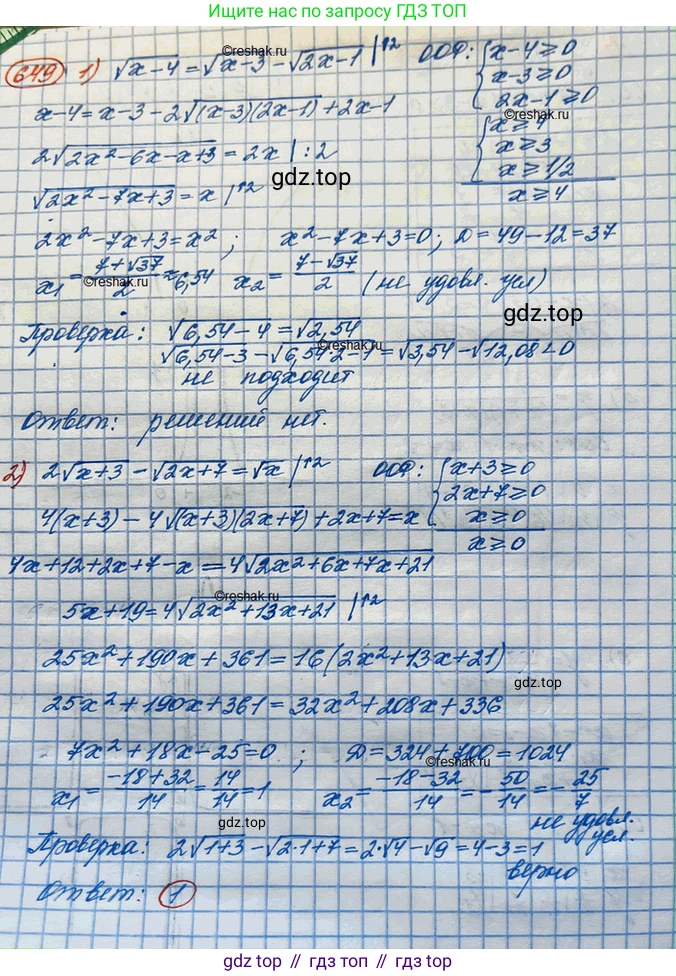 Ищите нас по запросу ГДЗ ТОП
©reshak.ru
649 1) √x-4 = √x-3 - √2x-1 |↑2 ООФ: { x-4≥0
x-3≥0
2x-1≥0
x-4 = x-3 - 2√(x-3)(2x-1) + 2x-1
©reshak.ru
{ x≥4
x≥3
x≥1/2
x≥4
2√2x²-6x-x+3 = 2x | :2
gdz.top
√2x²-7x+3 = x |↑2
2x²-7x+3=x² ; x²-7x+3=0; D=49-12=37
x₁ = (7+√37)/2 ≈ 6,54 x₂ = (7-√37)/2 (не удовл. усл)
©reshak.ru
gdz.top
Проверка: √6,54-4 = √2,54
©reshak.ru
√6,54-3 - √6,54·2-1 = √3,54 - √12,08 < 0
не подходит
Ответ: решений нет.
2) 2√x+3 - √2x+7 = √x |↑2 ООФ: { x+3≥0
2x+7≥0
x≥0
x≥0
©reshak.ru
4(x+3) - 4√(x+3)(2x+7) + 2x+7=x
4x+12+2x+7-x = 4√2x²+6x+7x+21
©reshak.ru
5x+19=4√2x²+13x+21 |↑2
25x²+190x+361=16(2x²+13x+21)
gdz.top
25x²+190x+361=32x²+208x+336
7x²+18x-25=0 ; D=324+700=1024
©reshak.ru
x₁ = (-18+32)/14 = 14/14 = 1 x₂ = (-18-32)/14 = -50/14 = -25/7
не удовл. усл.
gdz.top
Проверка: 2√1+3 - √2·1+7 = 2·√4 - √9 = 4-3=1
верно
Ответ: 1
gdz top // гдз топ // gdz.top